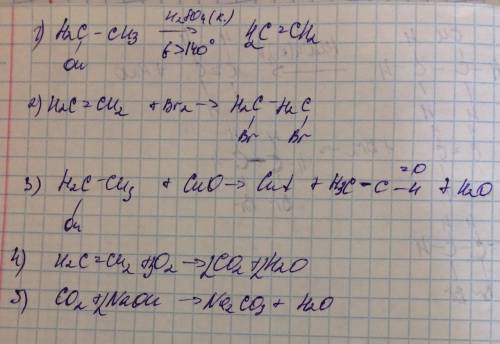 H₂SO₄(к.)
1) H₂C – CH₃ → H₂C = CH₂
OH t>140°
2) H₂C = CH₂ + Br₂ → H₂C – H₂C
Br Br
=O
3) H₂C – CH₃ + CuO → Cu↓ + H₃C – C – H + H₂O
OH
4) H₂C = CH₂ + 3O₂ → 2CO₂ + 2H₂O
5) CO₂ + 2NaOH → Na₂CO₃ + H₂O